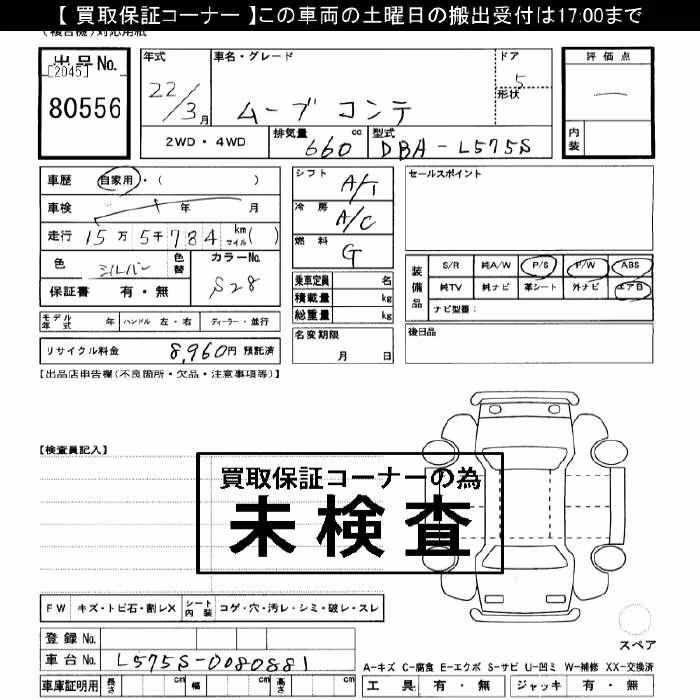 【 買取保証コーナー 】この車両の土曜日の搬出受付は17:00まで
出品No.
[2045]
80556
年式
22/3月
車名・グレード
ムーブ コンテ
ドア
5
形状
評価点
内装
2WD・4WD
排気量 660 cc
型式 DBA-L575S
車歴 自家用・( )
車検 年 月
走行 15万5千784 km マイル( )
色 シルバー
色替
カラーNo.
S28
保証書 有・無
モデル年式 年 ハンドル 左・右 ディーラー・並行
リサイクル料金 8,960円 預託済
シフト A/T
冷房 A/C
燃料 G
乗車定員 名
積載量 kg
総重量 kg
名変期限
月 日
セールスポイント
装備品
S/R 純A/W P/S P/W ABS
純TV 純ナビ 革シート 外ナビ エアB
ナビ型番:
後日品
【出品店申告欄(不良箇所・欠品・注意事項等)】
【検査員記入】
買取保証コーナーの為
未検査
FW キズ・トビ石・割レX シート内装 コゲ・穴・汚レ・シミ・破レ・スレ
スペア
登録No.
車台No. L575S-0080881
車庫証明用 長さ cm 幅 cm 高さ cm
A-キズ C-腐食 E-エクボ S-サビ U-凹ミ W-補修 XX-交換済
工具 有・無 ジャッキ 有・無